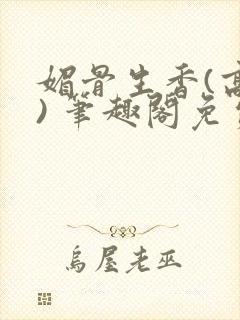 媚骨生香(高
)笔趣阁免
乌屋老巫